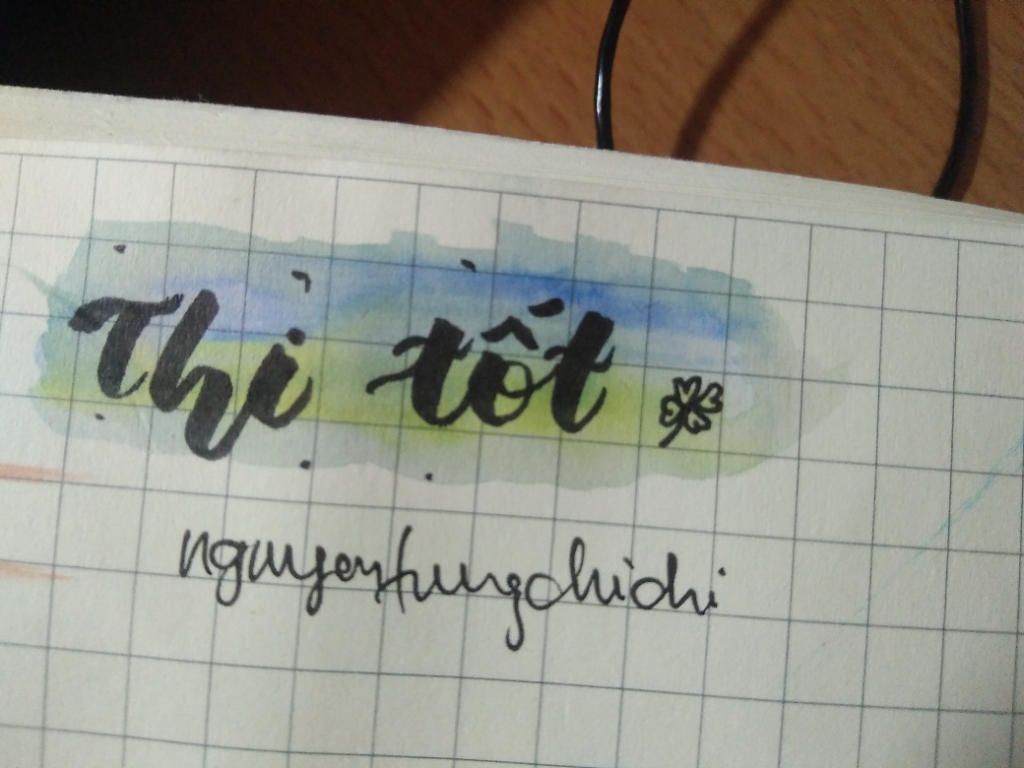 Thi tốt
nguyentungchichi